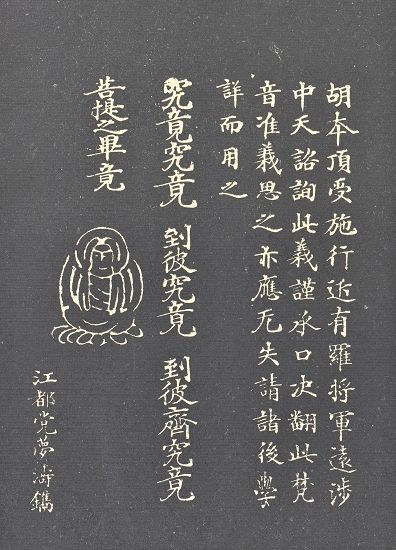 胡本頂受施行近有羅將軍遠涉
中天諮詢此義謹承口决翻此梵
音准義思之亦應无失請諸後學
詳而用之
究竟究竟 到彼究竟 到彼齊究竟
菩提之畢竟
江都党夢濤鐫